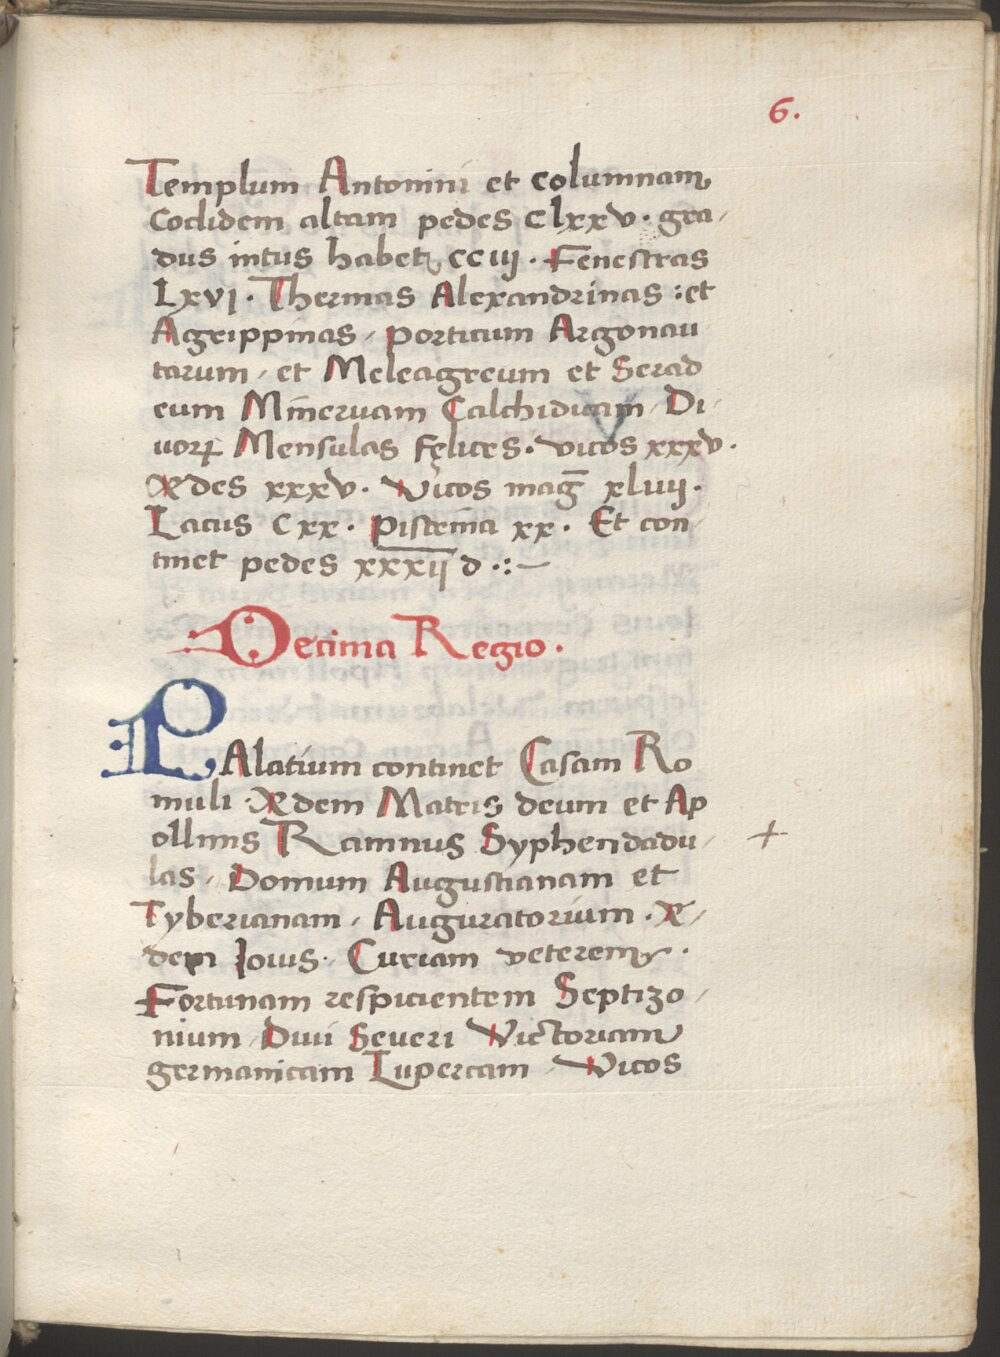 6.
Templum Antonini et columnam
Coclidem altam pedes clxxv · gra
dus intus habet cciij · Fenestras
Lxvj · Thermas Alexandrinas : et
Agrippinas, porticum Argonau
tarum, et Meleagreum et Serad
eum Minervam Calchidicam, Di
uoꝝ Mensulas fęlices. vicos xxxv.
Ædes xxxv. Vicos mag̅ xlviij.
Lacus cxx. Pistrina xx. Et con
tinet pedes xxxij d ·:~
Decima Regio.
PAlatium continet Casam Ro
muli · Ædem Matris deum et Ap
ollinis Ramnus Syphendadu +
las, Domum Augustianam et
Tyberianam, Auguratorium · Æ
dem Iouis. Curiam veterem.
Fortunam respicientem Septizo
nium Diui Seueri Victoriam
germanicam Lupercam Vicos